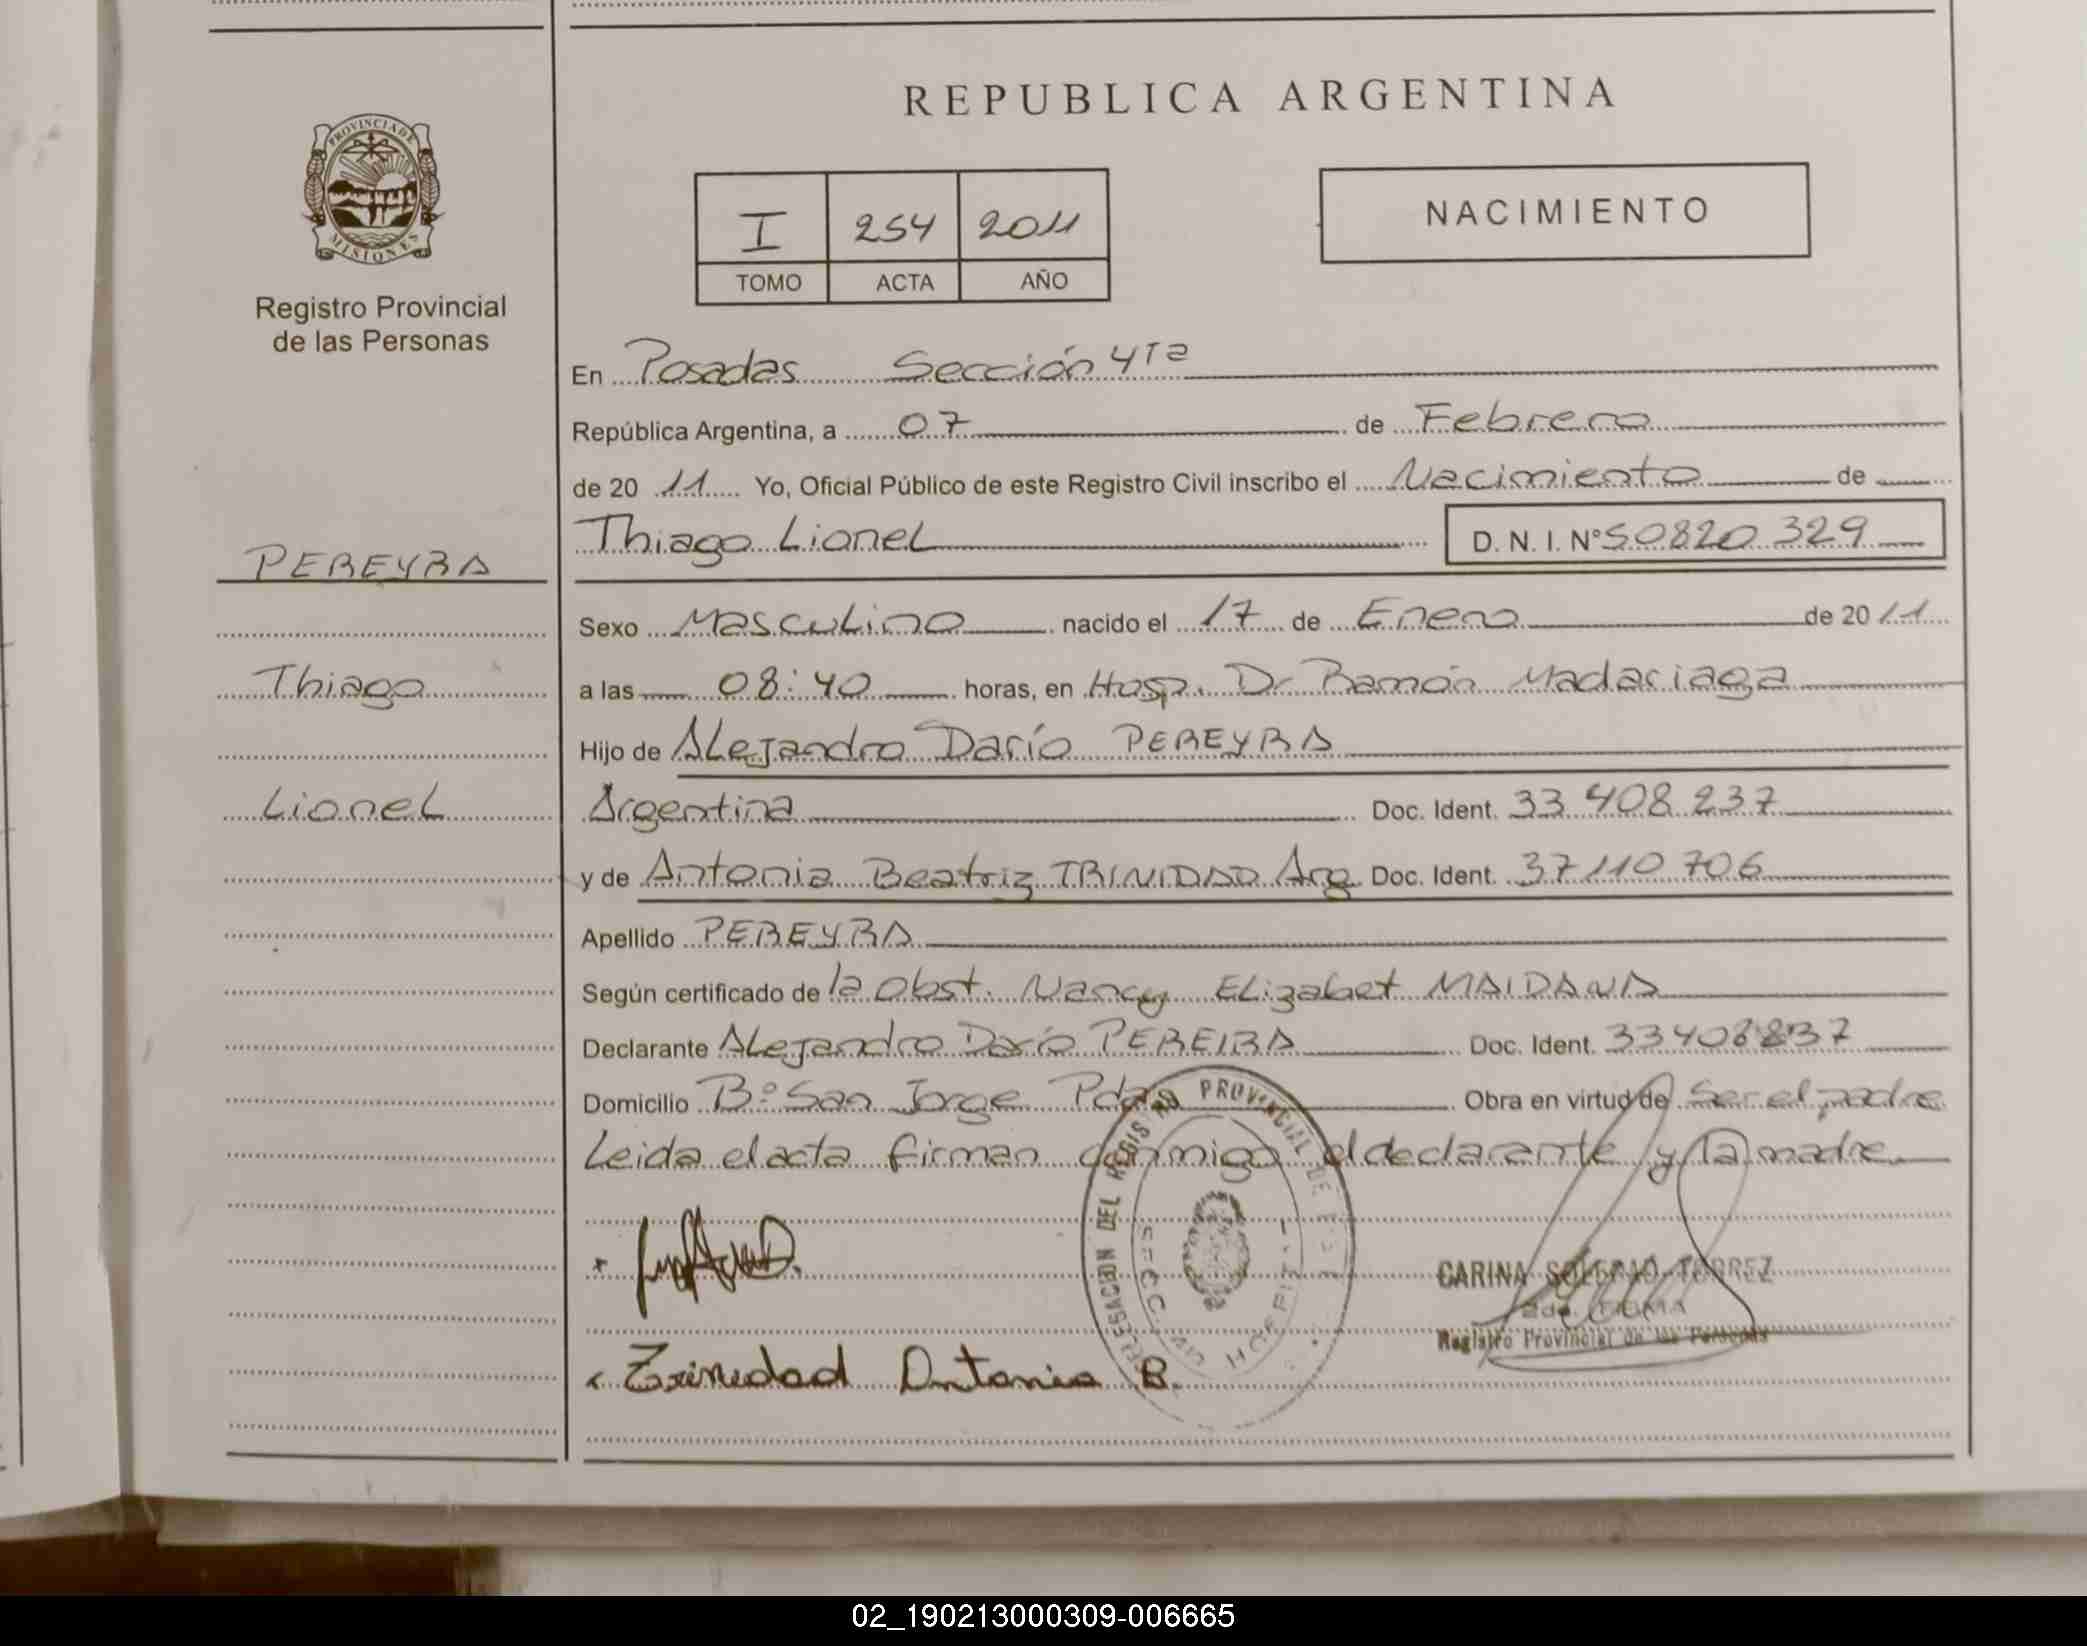 REPUBLICA ARGENTINA
PROVINCIA DE
MISIONES
Registro Provincial
de las Personas
I 254 2011
TOMO ACTA AÑO
NACIMIENTO
En Posadas Sección 4Ta
República Argentina, a 07 de Febrero
de 20 11 Yo, Oficial Público de este Registro Civil inscribo el Nacimiento de
Thiago Lionel D. N. I. N° 50820 329
PEREYRA
Sexo Masculino nacido el 17 de Enero de 2011
Thiago
a las 08:40 horas, en Hosp. Dr Ramón Madariaga
Hijo de Alejandro Darío PEREYRA
Lionel
Argentina Doc. Ident. 33 408 237
y de Antonia Beatriz TRINIDAD Arg Doc. Ident. 37 110 706
Apellido PEREYRA
Según certificado de la Obst. Nancy Elizabet MAIDANA
Declarante Alejandro Darío PEREIRA Doc. Ident. 33408837
Domicilio B° San Jorge Pdas Obra en virtud de Ser el padre
Leida el acta firman conmigo el declarante y la madre
DELEGACION DEL REGISTRO PROVINCIAL DE
CARINA SOLEDAD TORREZ
2da. FIRMA
Registro Provincial de las Personas
Trinidad Antonia B.
02_190213000309-006665